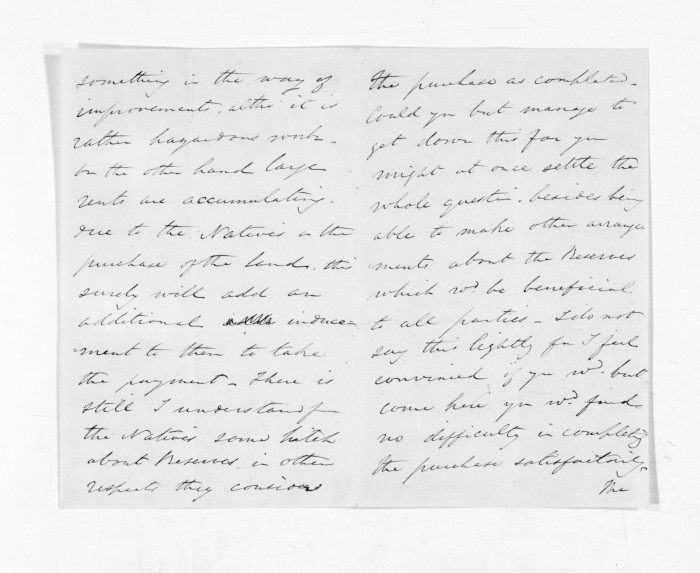 something in the way of
improvements, altho it is
rather hazardous work.
On the other hand large
rents are accumulating.
due to the Natives on the
purchase of the land. this
surely will add an
additional induce-
ment to them to take
the payment. There is
still I understand from
the Natives some hitch
about Reserves, in other
respects they consider
the purchase as completed.
Could you but manage to
get down this far you
might at once settle the
whole questn. besides being
able to make other arrange
ments about the Reserves
which wd. be beneficial
to all parties. I do not
say this lightly for I feel
convinced if you wd. but
come here you wd. find
no difficulty in completing
the purchase satisfactorily.
The